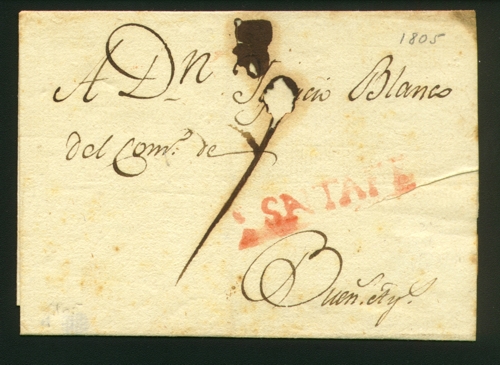 1805
A Dn Ignacio Blanco
del Com.o de
SANTAFE
Buen.s Ay.s